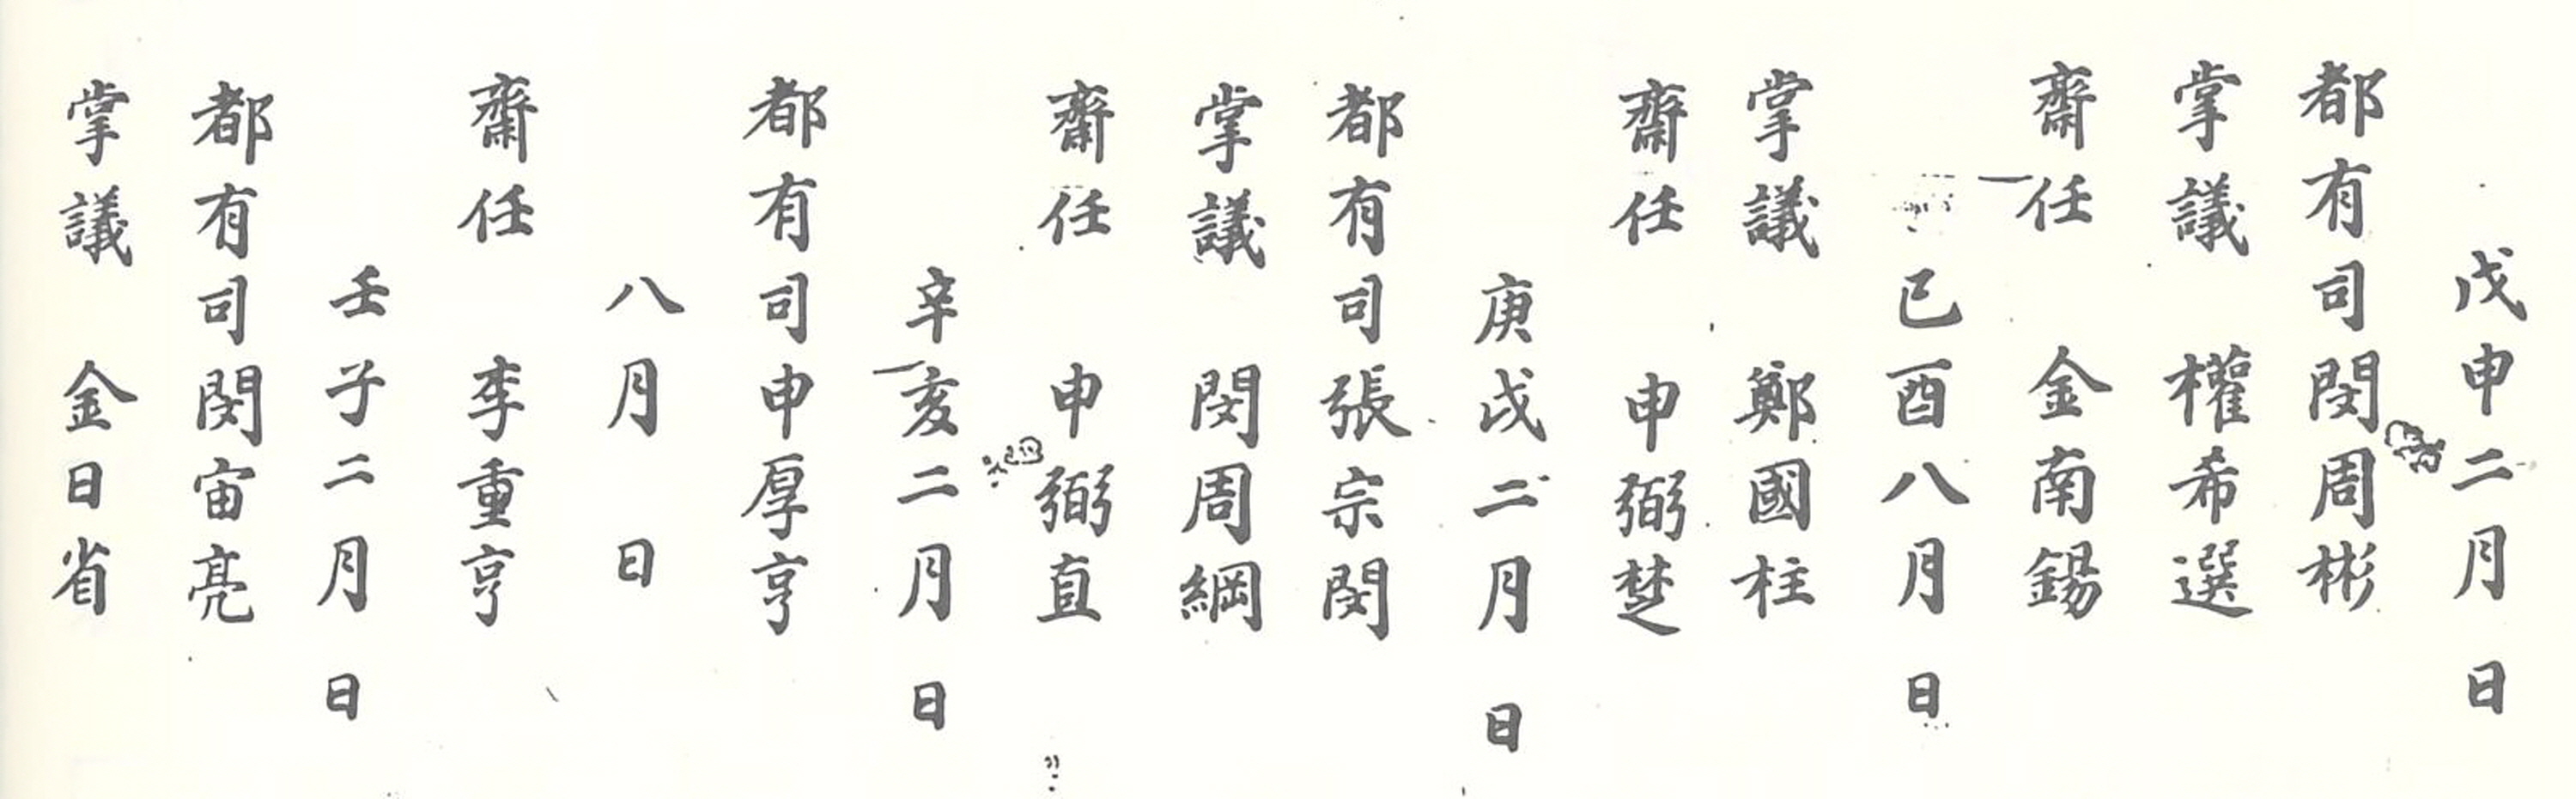 戊申二月 日
都有司閔周彬
掌議 權希選
齋任 金南錫
己酉八月 日
掌議 鄭國柱
齋任 申弼楚
庚戌二月 日
都有司張宗閔
掌議 閔周綱
齋任 申弼直
辛亥二月 日
都有司申厚亨
八月 日
齋任 李重亨
壬子二月 日
都有司閔宙亮
掌議 金日省